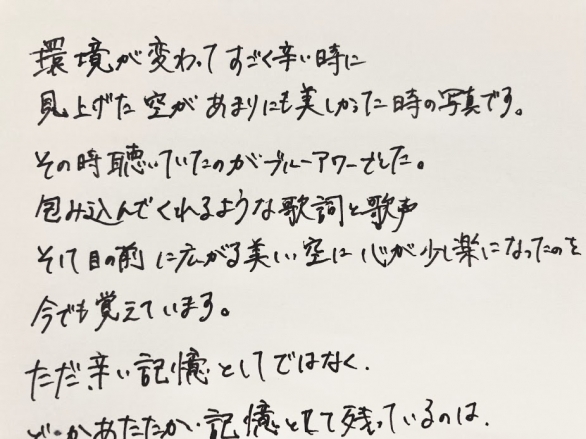 環境が変わってすごく辛い時に
見上げた空があまりにも美しかった時の写真です。
その時聴いていたのがブルーアワーでした。
包み込んでくれるような歌詞と歌声
そして目の前に広がる美しい空に心が少し楽になったのを
今でも覚えています。
ただ辛い記憶としてではなく、
どこかあたたかい記憶として残っているのは、